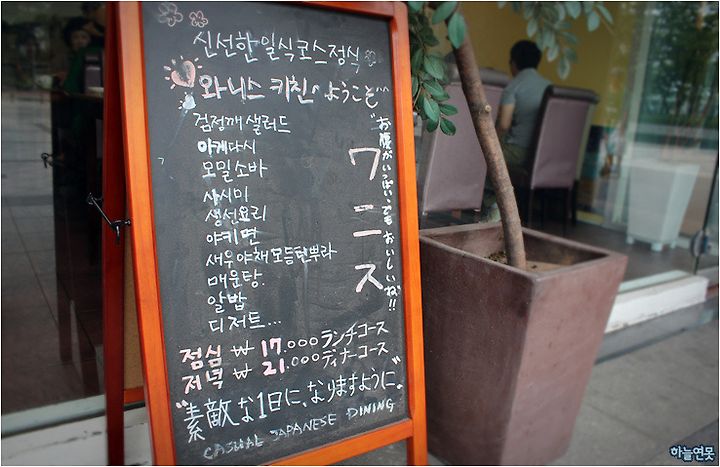 신선한 일식코스정식
와니스 키친 ようこそ
검정깨 샐러드
아게다시
모밀소바
사시미
생선요리
야키면
새우야채모듬텐뿌라
매운탕
알밥
디저트...
ワニス
"お腹がいっぱいでもおいしいね!!
점심 ₩ 17.000 ランチコース
저녁 ₩ 21.000 ディナーコース
"素敵な1日に、なりますように"
CASUAL JAPANESE DINING
하늘연못